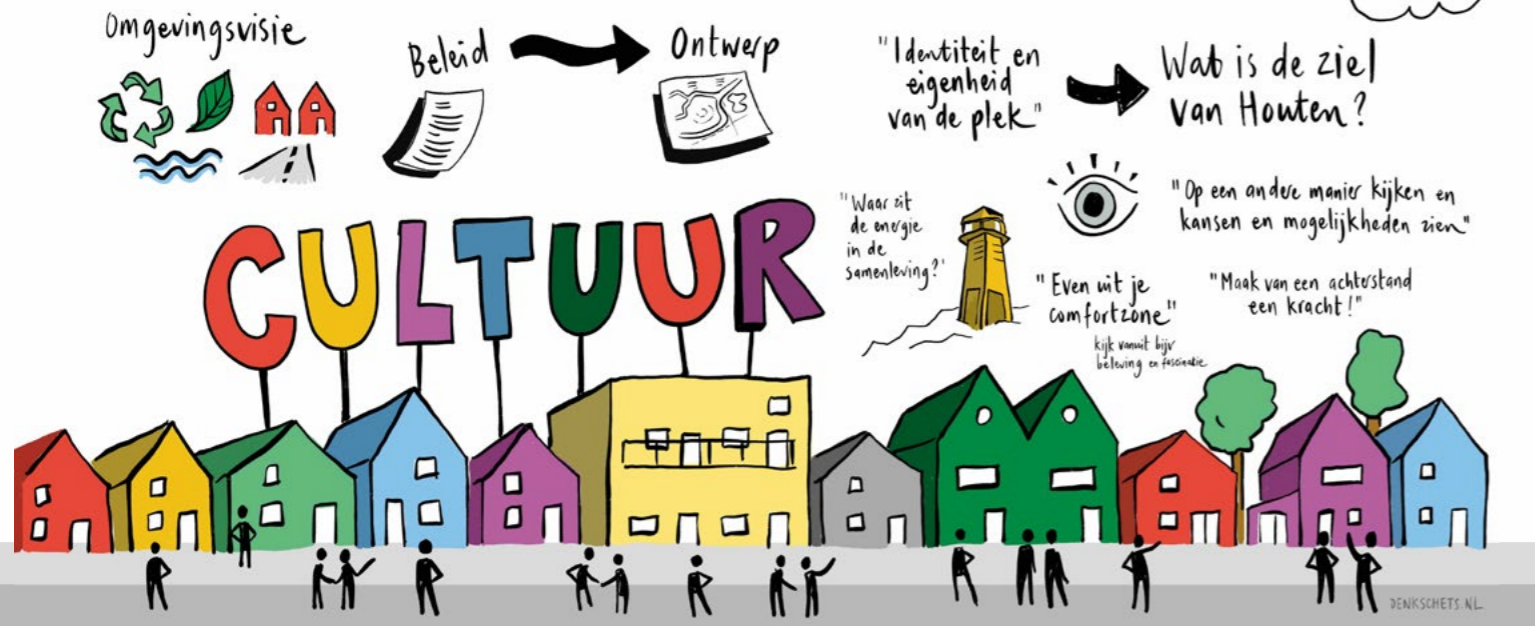 Omgevingsvisie
Beleid
Ontwerp
"Identiteit en
eigenheid
van de plek"
Wat is de ziel
van Houten?
"Waar zit
de energie
in de
samenleving?"
"Op een andere manier kijken en
kansen en mogelijkheden zien"
"Even uit je
comfortzone"
kijk vanuit bijv
beleving en fascinatie
"Maak van een achterstand
een kracht!"
CULTUUR
DENKSCHETS.NL